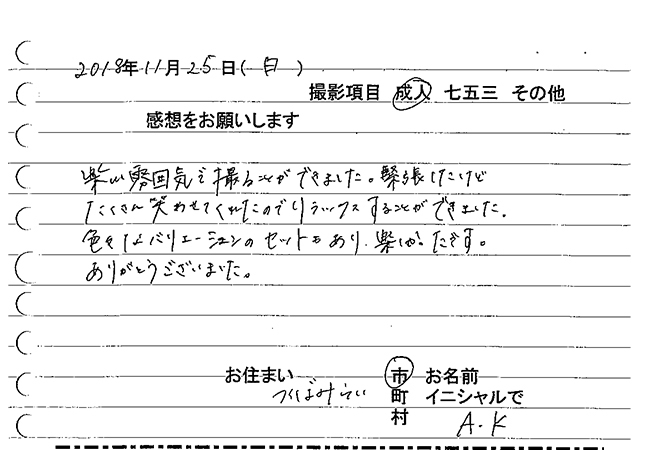 2018年11月25日(日)
撮影項目 成人 七五三 その他
感想をお願いします
楽しい雰囲気で撮ることができました。緊張したけど
たくさん笑わせてくれたのでリラックスすることができました。
色々なバリエーションのセットもあり、楽しかったです。
ありがとうございました。
お住まい 市 お名前
つくばみらい 町 イニシャルで
村 A.K